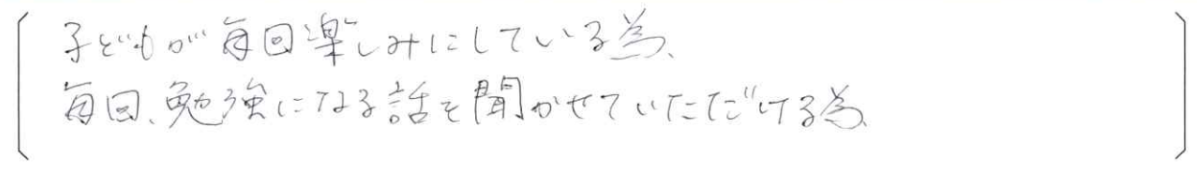 子どもが毎回楽しみにしている為、
毎回、勉強になる話を聞かせていただける為、